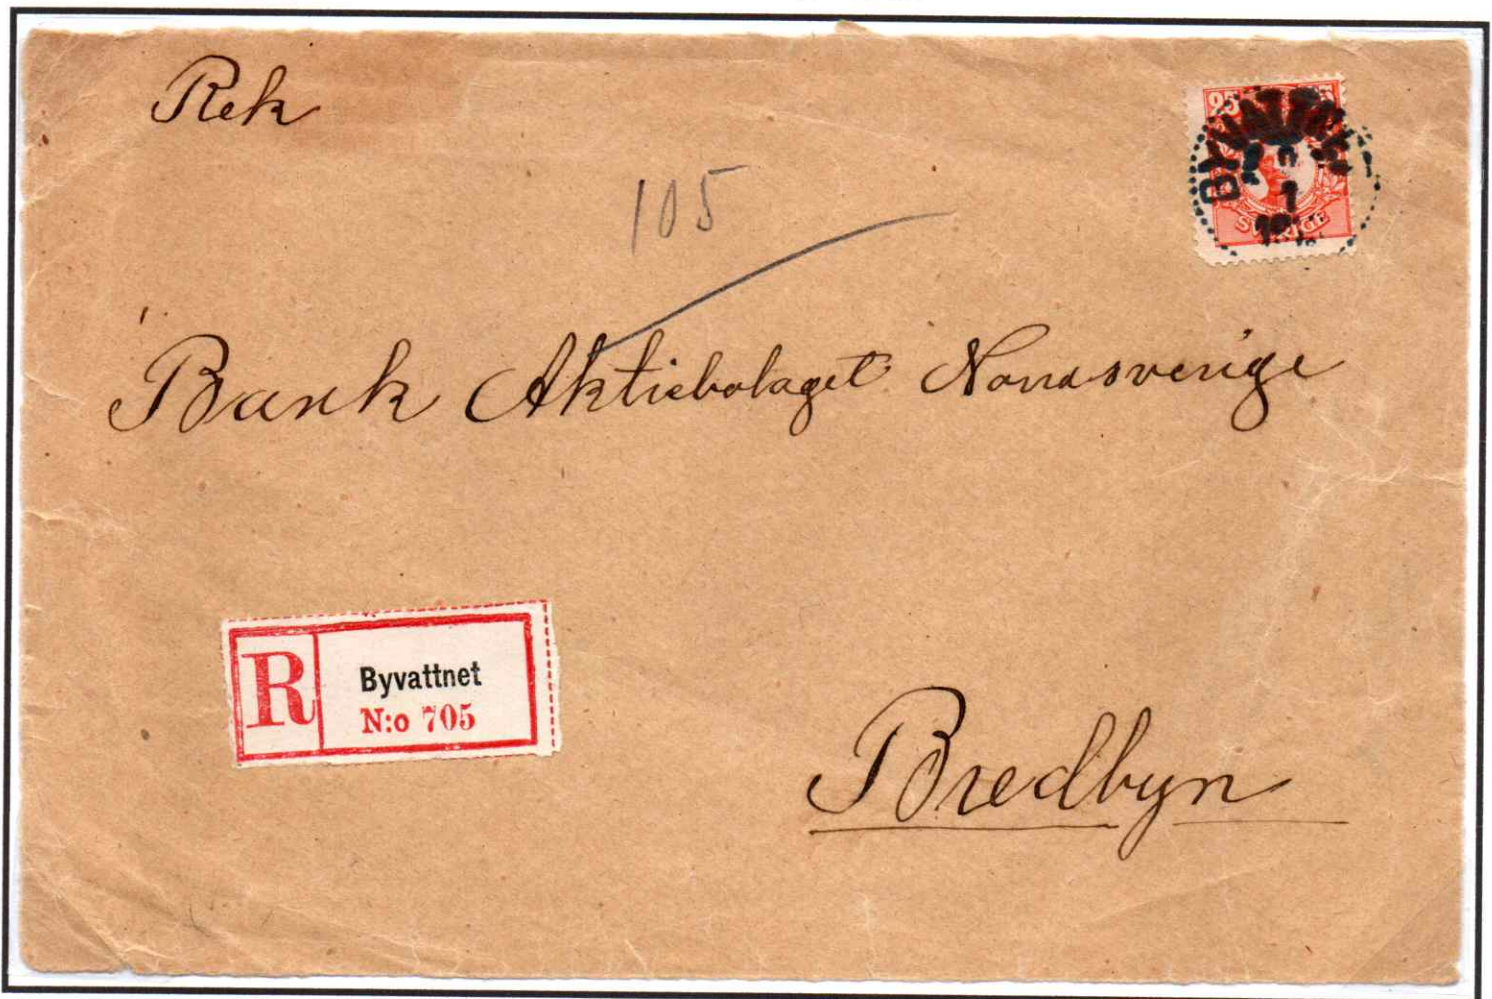 Rek
25
BYVATTNET
1
SVERIGE
105
Bank Aktiebolaget Norrasverige
R
Byvattnet
N:o 705
Bredbyn